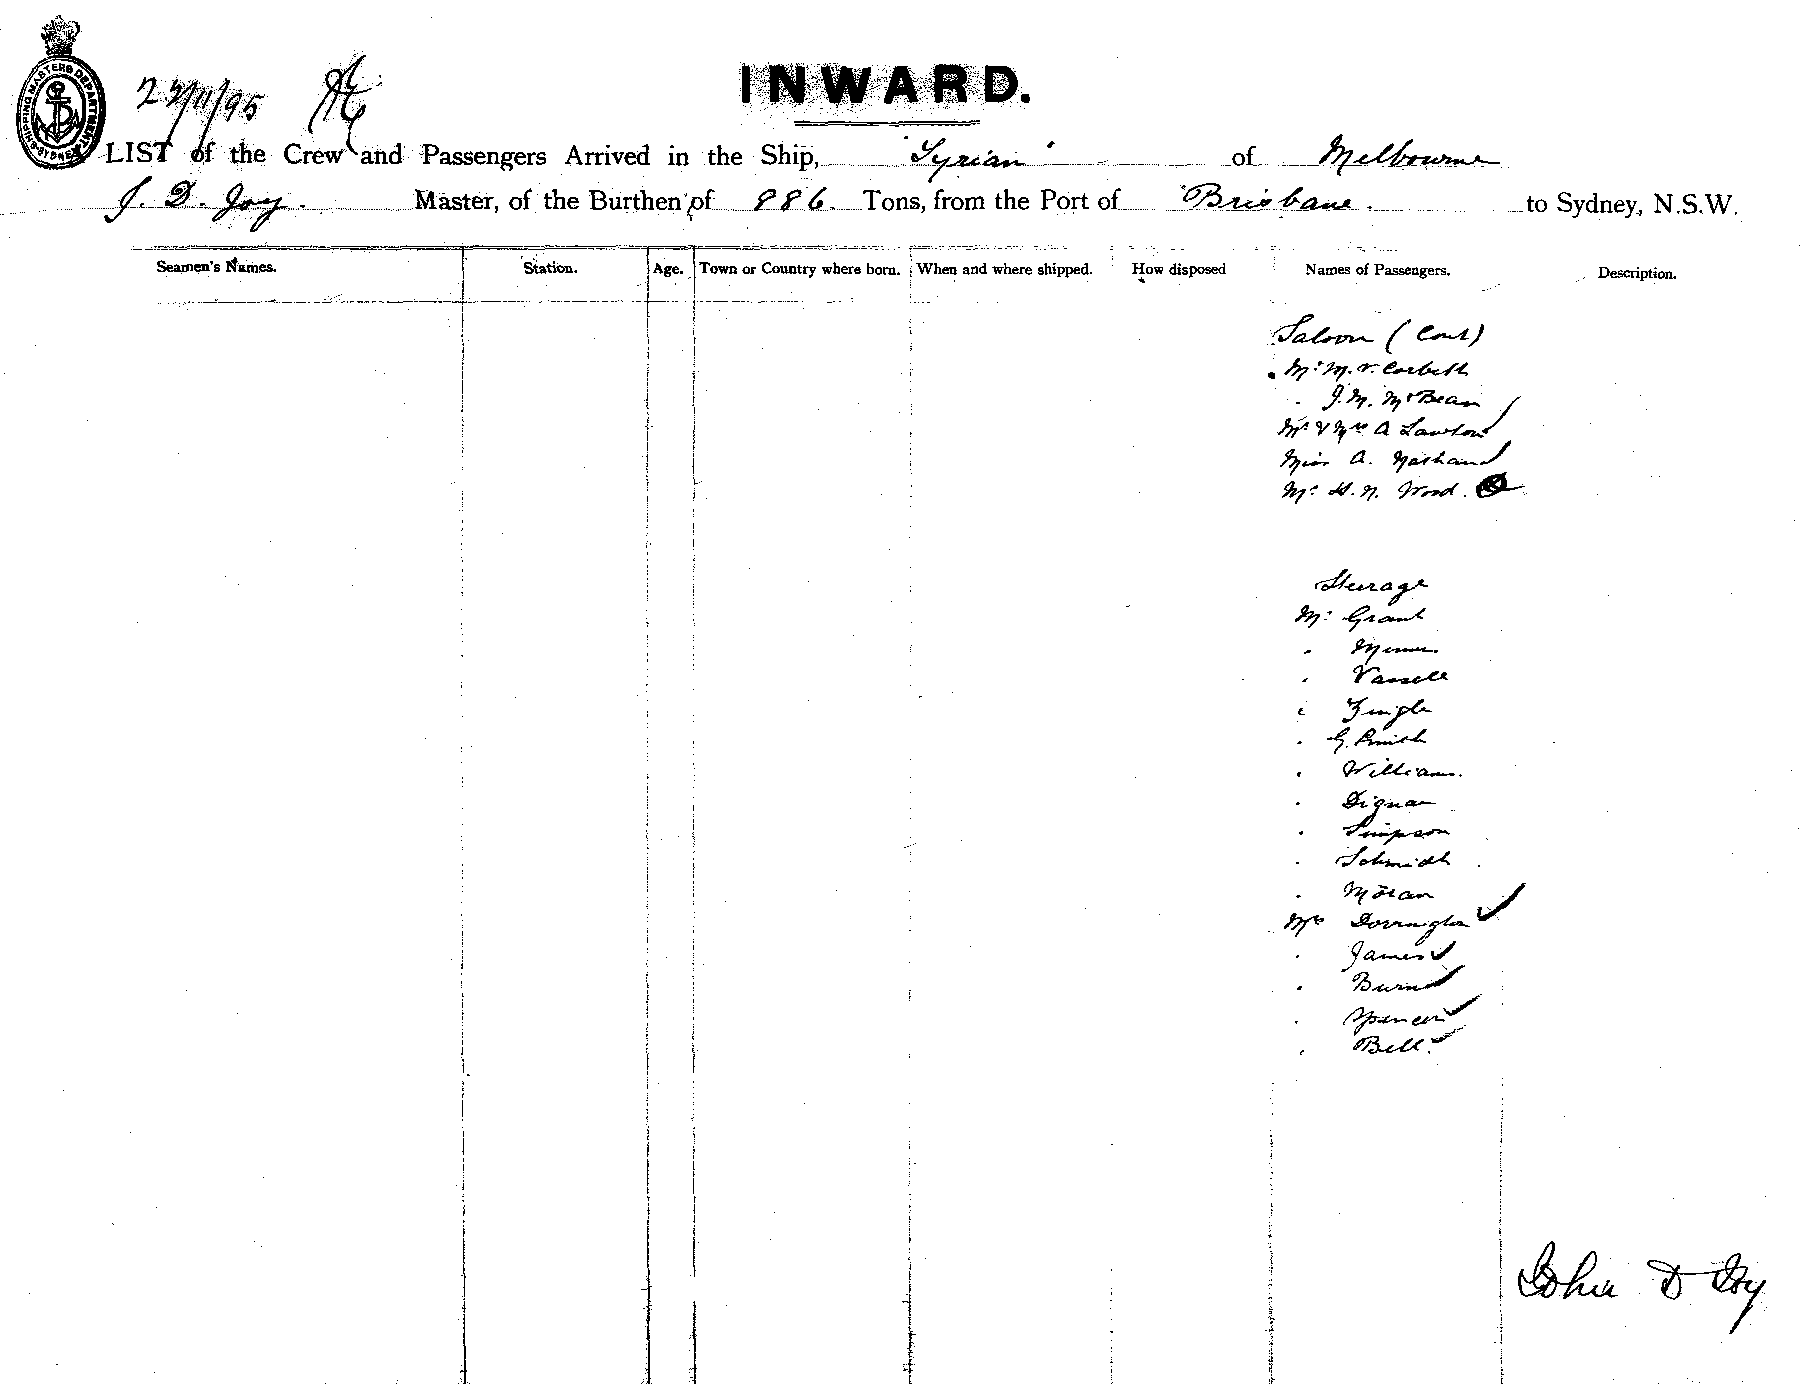 INWARD.
SHIPPING MASTERS DEPARTMENT SYDNEY
23/11/95
LIST of the Crew and Passengers Arrived in the Ship, "Syrian" of Melbourne
J. D. Joy. Master, of the Burthen of 886 Tons, from the Port of Brisbane. to Sydney, N.S.W.
Seamen's Names. Station. Age. Town or Country where born. When and where shipped. How disposed Names of Passengers. Description.
Saloon (Cont)
Mr M. V. Corbett
" J. M. McBean
Mr & Mrs A Lawton
Miss A. Nathan
Mr H. N. Wood.
Steerage
Mr Grant
"
" Vassell
"
" G. Smith
" Williams.
" Dignan
" Simpson
" Schmidt
" Moran
Mrs Dorrington
" James
" Burns
" Spencer
" Bell
John D Joy